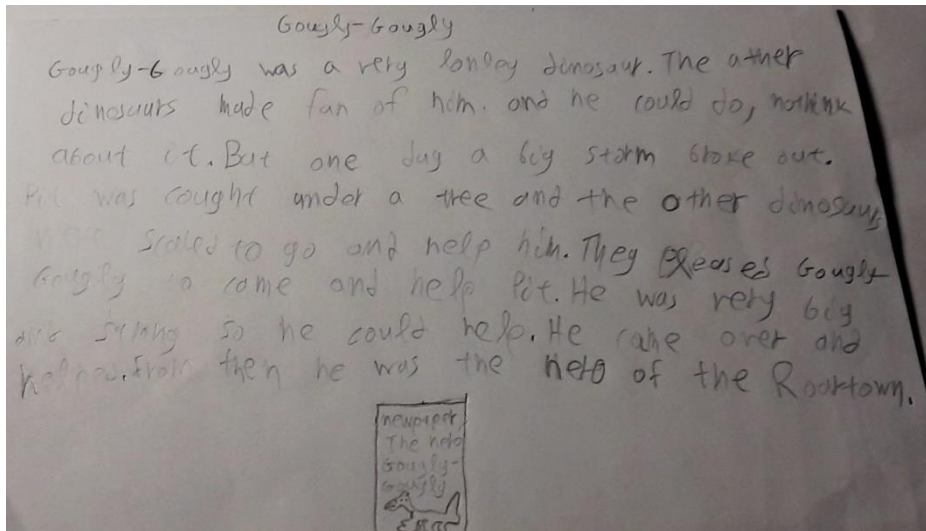 Gougly-Gougly
Gougly-Gougly was a very lonley dinosaur. The ather
dinosaurs made fan of him. and he could do, nothink
about it. But one day a big storm broke out.
Pit was cought under a tree and the other dinosaurs
were scared to go and help him. They pleased Gougly-
Gougly to come and help Pit. He was very big
and strong so he could help. He came over and
helped. From then he was the hero of the Roartown.
newpaper
The hero
Gougly-
Gougly